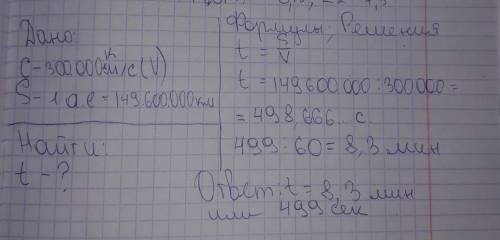 Дано:
C-300000км/с(V)
S-1 а.е = 149.600.000км
Найти:
t - ?
Формулы, Решения
t = S/V
t = 149.600 000 : 300000 =
= 498,666... с.
499 : 60 = 8,3 мин
Ответ: t = 8,3 мин
или 499 сек